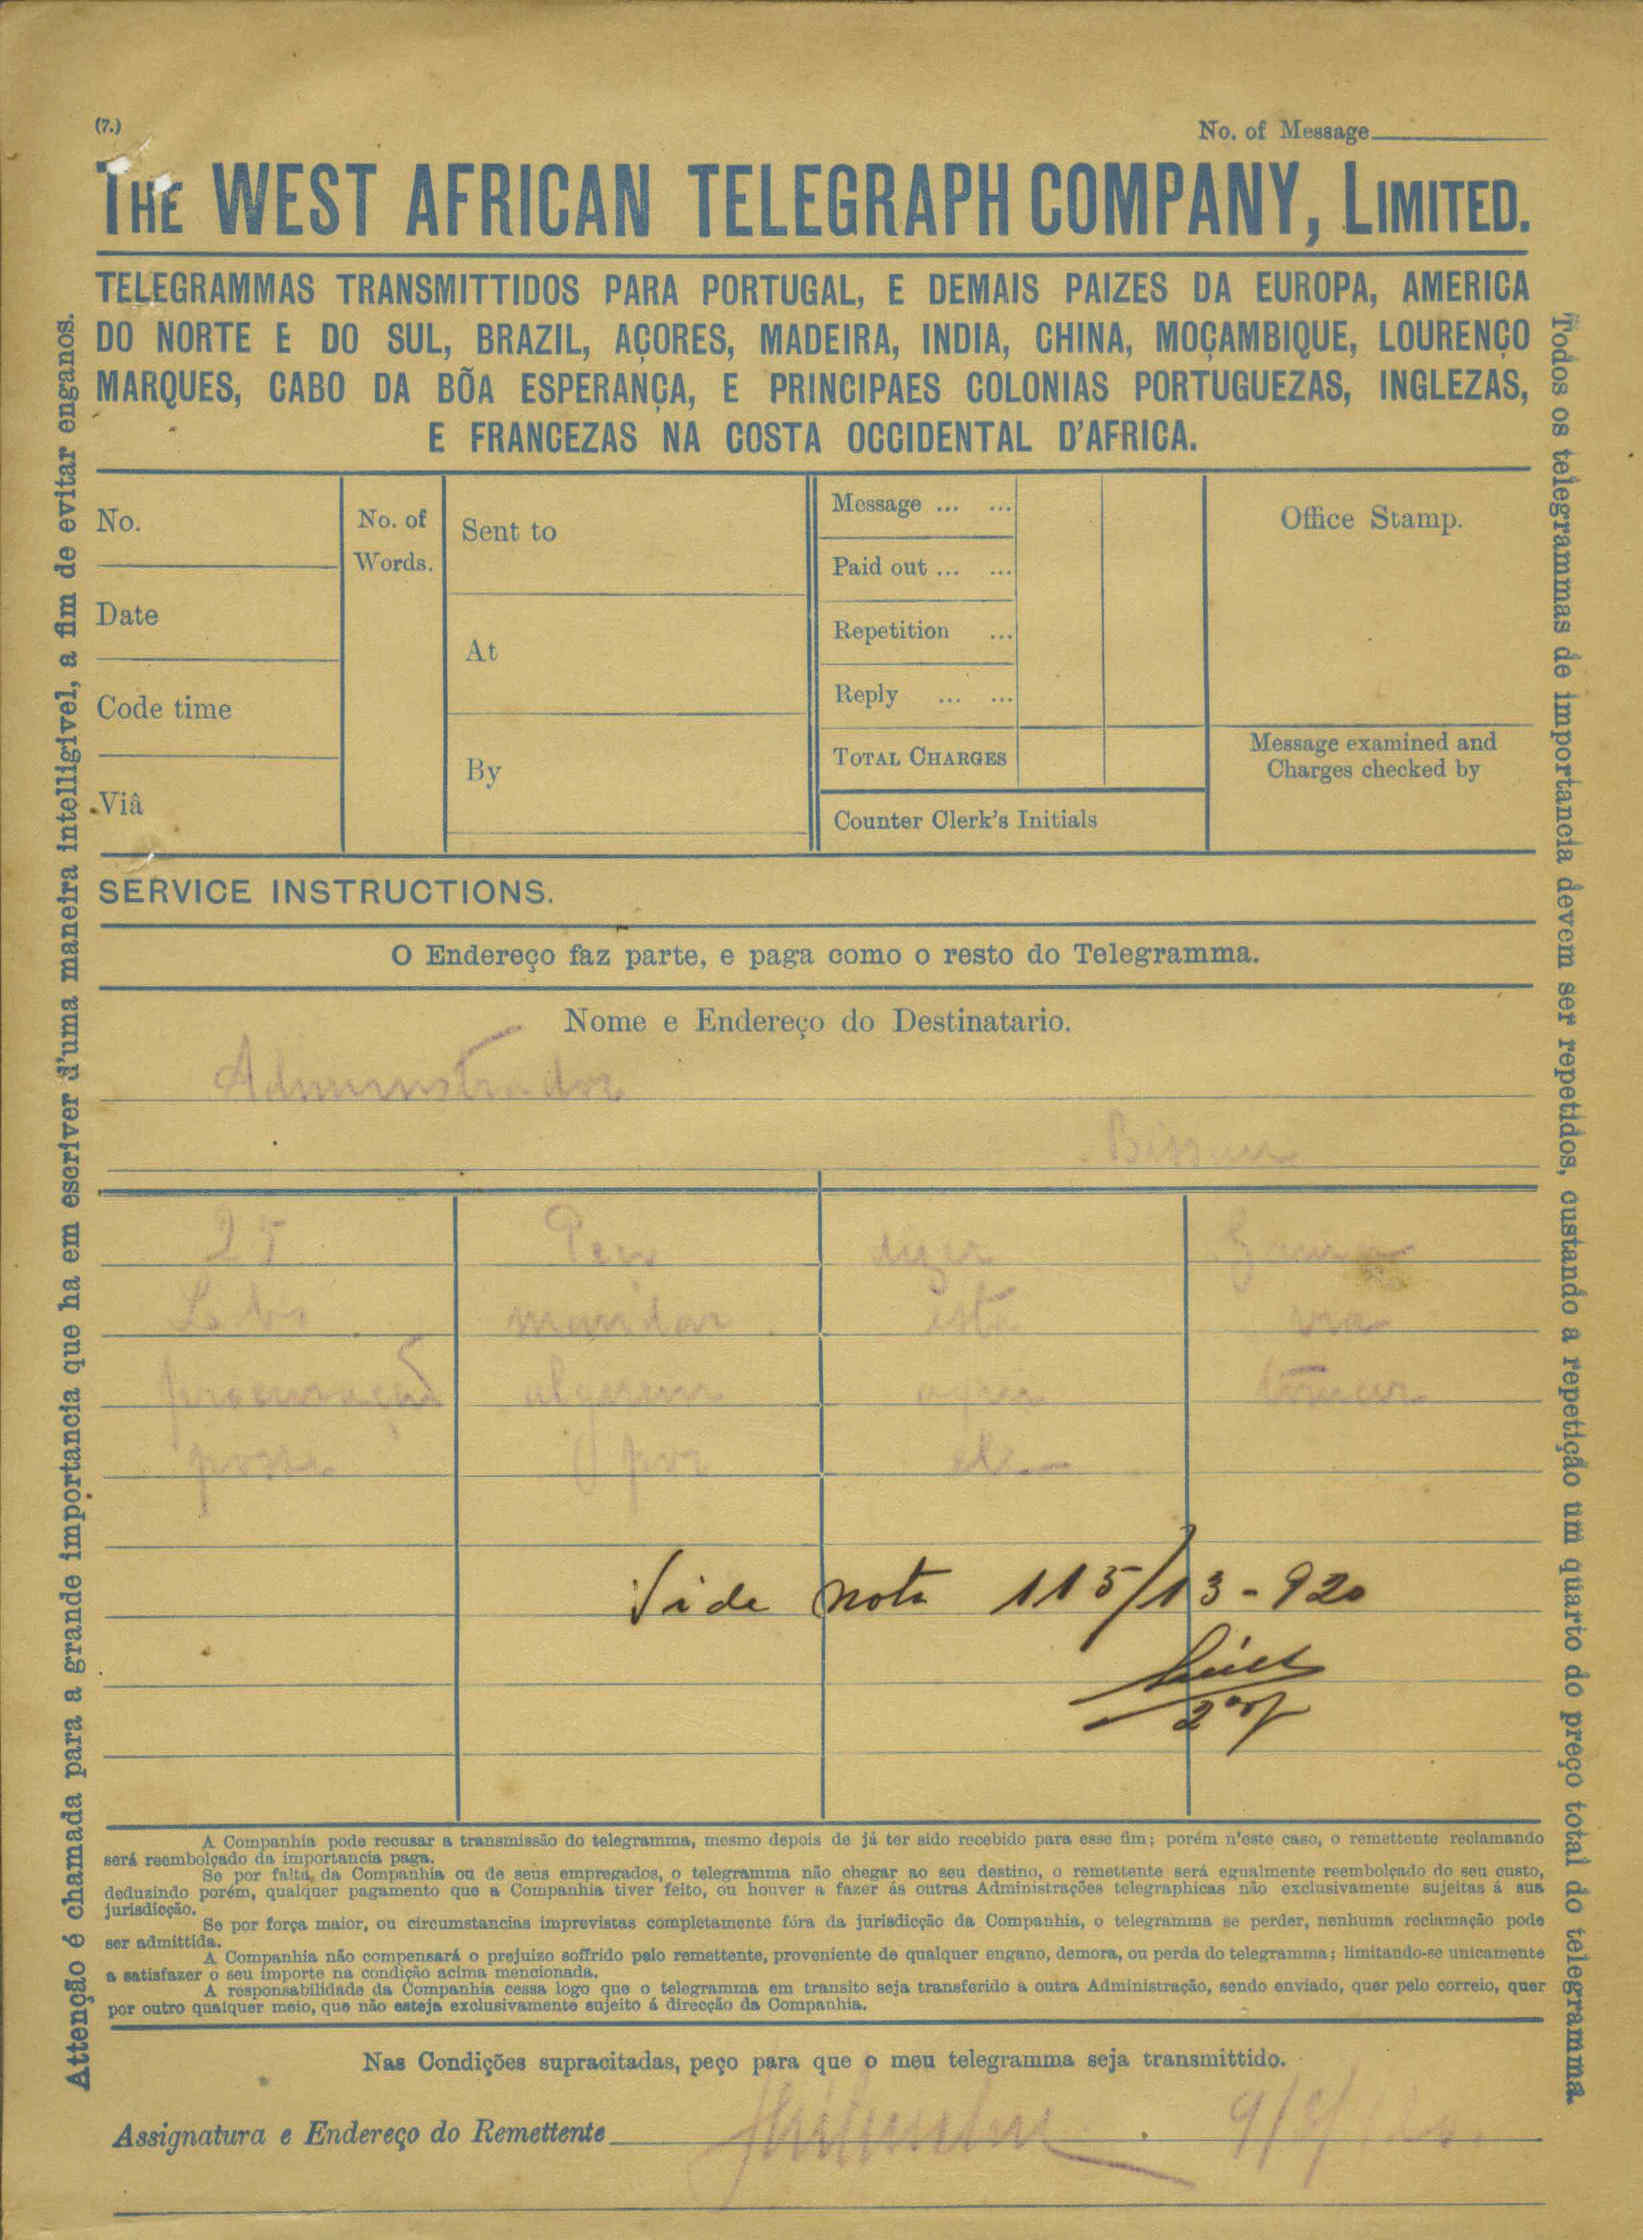 (7.)
No. of Message
THE WEST AFRICAN TELEGRAPH COMPANY, LIMITED.
TELEGRAMMAS TRANSMITTIDOS PARA PORTUGAL, E DEMAIS PAIZES DA EUROPA, AMERICA
DO NORTE E DO SUL, BRAZIL, AÇORES, MADEIRA, INDIA, CHINA, MOÇAMBIQUE, LOURENÇO
MARQUES, CABO DA BÕA ESPERANÇA, E PRINCIPAES COLONIAS PORTUGUEZAS, INGLEZAS,
E FRANCEZAS NA COSTA OCCIDENTAL D'AFRICA.
No.
Date
Code time
Viâ
No. of
Words.
Sent to
At
By
Message ... ...
Paid out ... ...
Repetition ...
Reply ... ...
TOTAL CHARGES
Counter Clerk's Initials
Office Stamp.
Message examined and
Charges checked by
SERVICE INSTRUCTIONS.
O Endereço faz parte, e paga como o resto do Telegramma.
Nome e Endereço do Destinatario.
Administrador
Bissau
25 Peço dizer
Lobo mandar esta via
procuração alguem afim tomar
posse por ele
Vide nota 115/13-920
A Companhia pode recusar a transmissão do telegramma, mesmo depois de já ter sido recebido para esse fim; porém n'este caso, o remettente reclamando
será reembolçado da importancia paga.
Se por falta da Companhia ou de seus empregados, o telegramma não chegar ao seu destino, o remettente será egualmente reembolçado do seu custo,
deduzindo porém, qualquer pagamento que a Companhia tiver feito, ou houver a fazer ás outras Administrações telegraphicas não exclusivamente sujeitas á sua
jurisdicção.
Se por força maior, ou circumstancias imprevistas completamente fóra da jurisdicção da Companhia, o telegramma se perder, nenhuma reclamação pode
ser admittida.
A Companhia não compensará o prejuizo soffrido pelo remettente, proveniente de qualquer engano, demora, ou perda do telegramma; limitando-se unicamente
a satisfazer o seu importe na condição acima mencionada.
A responsabilidade da Companhia cessa logo que o telegramma em transito seja transferido a outra Administração, sendo enviado, quer pelo correio, quer
por outro qualquer meio, que não esteja exclusivamente sujeito á direcção da Companhia.
Nas Condições supracitadas, peço para que o meu telegramma seja transmittido.
Assignatura e Endereço do Remettente
Attenção é chamada para a grande importancia que ha em escriver d'uma maneira intelligivel, a fim de evitar enganos.
Todos os telegrammas de importancia devem ser repetidos, custando a repetição um quarto do preço total do telegramma.